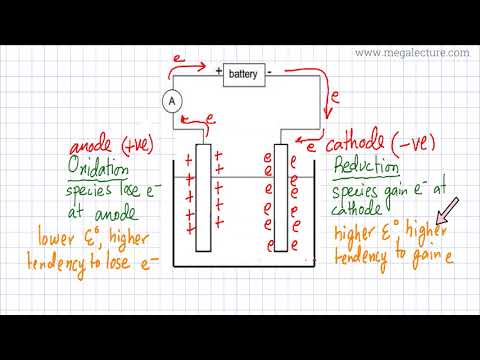 www.megalecture.com
e
+ battery -
A
e
e
e
e
anode (+ve)
Oxidation
species lose e-
at anode
lower E°, higher
tendency to lose e-
+ +
+ +
+ +
+ +
+ +
cathode (-ve)
Reduction
species gain e- at
cathode
higher E° higher
tendency to gain e
e e
e e
e e
e e
e e
e e